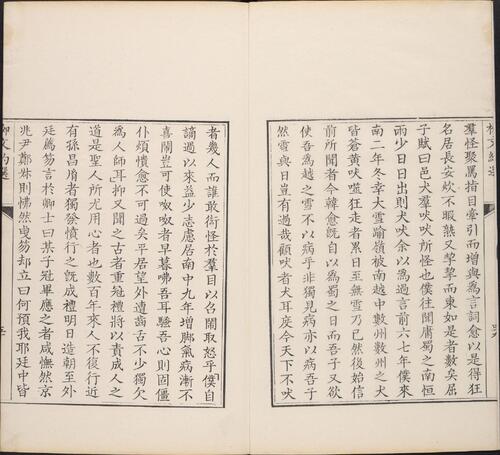 羣怪聚罵指目牽引而增與爲言詞愈以是得狂
名居長安炊不暇熟又挈挈而東如是者數矣屈
子賦曰邑犬羣吠吠所怪也僕往聞庸蜀之南恒
雨少日日出則犬吠余以爲過言前六七年僕來
南二年冬幸大雪踰嶺被南越中數州數州之犬
皆蒼黄吠噬狂走者累日至無雪乃已然後始信
前所聞者今韓愈既自以爲蜀之日而吾子又欲
使吾爲越之雪不以病乎非獨見病亦以病吾子
然雪與日豈有過哉顧吠者犬耳度今天下不吠
者幾人而誰敢衒怪於羣目以召鬧取怒乎僕自
謫過以來益少志慮居南中九年增脚氣病漸不
喜鬧豈可使呶呶者早暮咈吾耳騷吾心則固僵
仆煩憒愈不可過矣平居望外遭齒舌不少獨欠
爲人師耳抑又聞之古者重冠禮將以責成人之
道是聖人所尤用心者也數百年來人不復行近
有孫昌𦙍者獨發憤行之既成禮明日造朝至外
廷薦笏言於卿士曰某子冠畢應之者咸憮然京
兆尹鄭叔則怫然曳笏却立曰何預我耶廷中皆